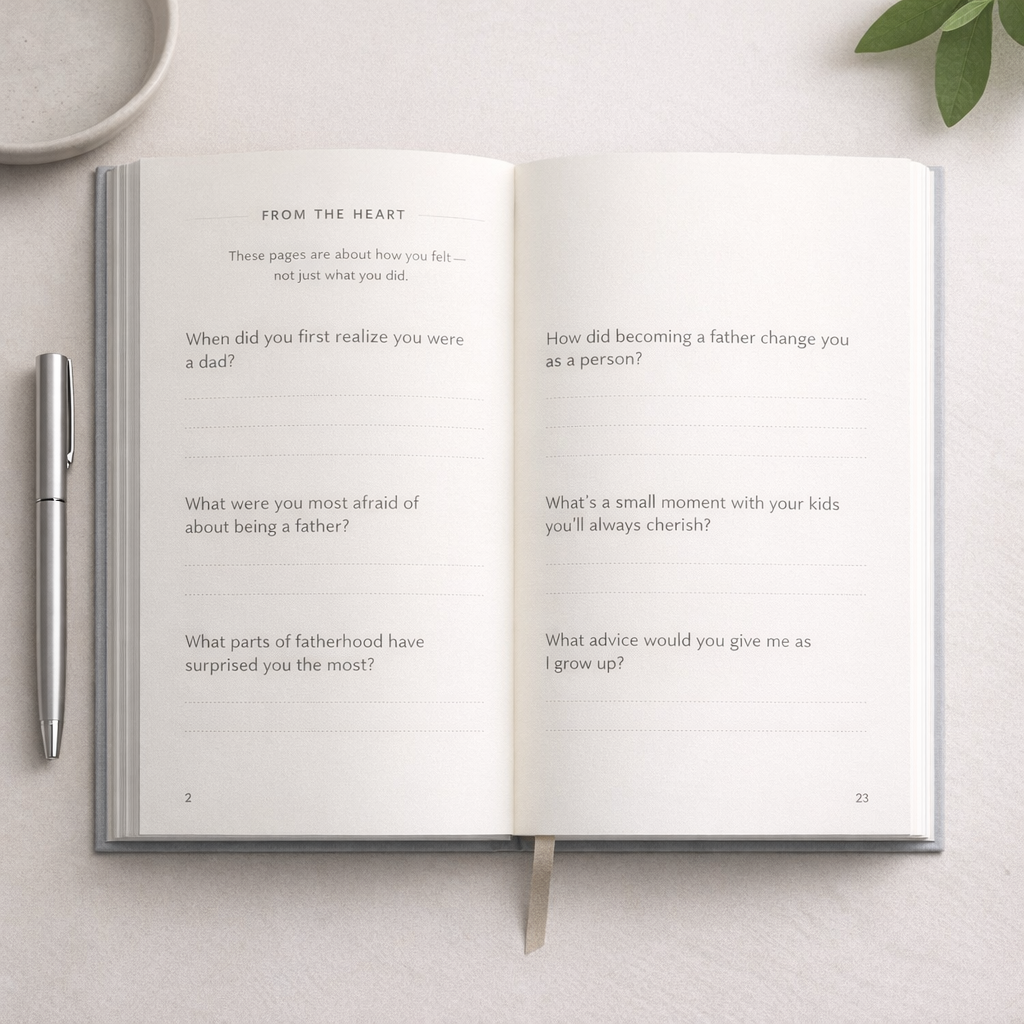 FROM THE HEART
These pages are about how you felt—
not just what you did.
When did you first realize you were
a dad?
What were you most afraid of
about being a father?
What parts of fatherhood have
surprised you the most?
2
How did becoming a father change you
as a person?
What's a small moment with your kids
you'll always cherish?
What advice would you give me as
I grow up?
23